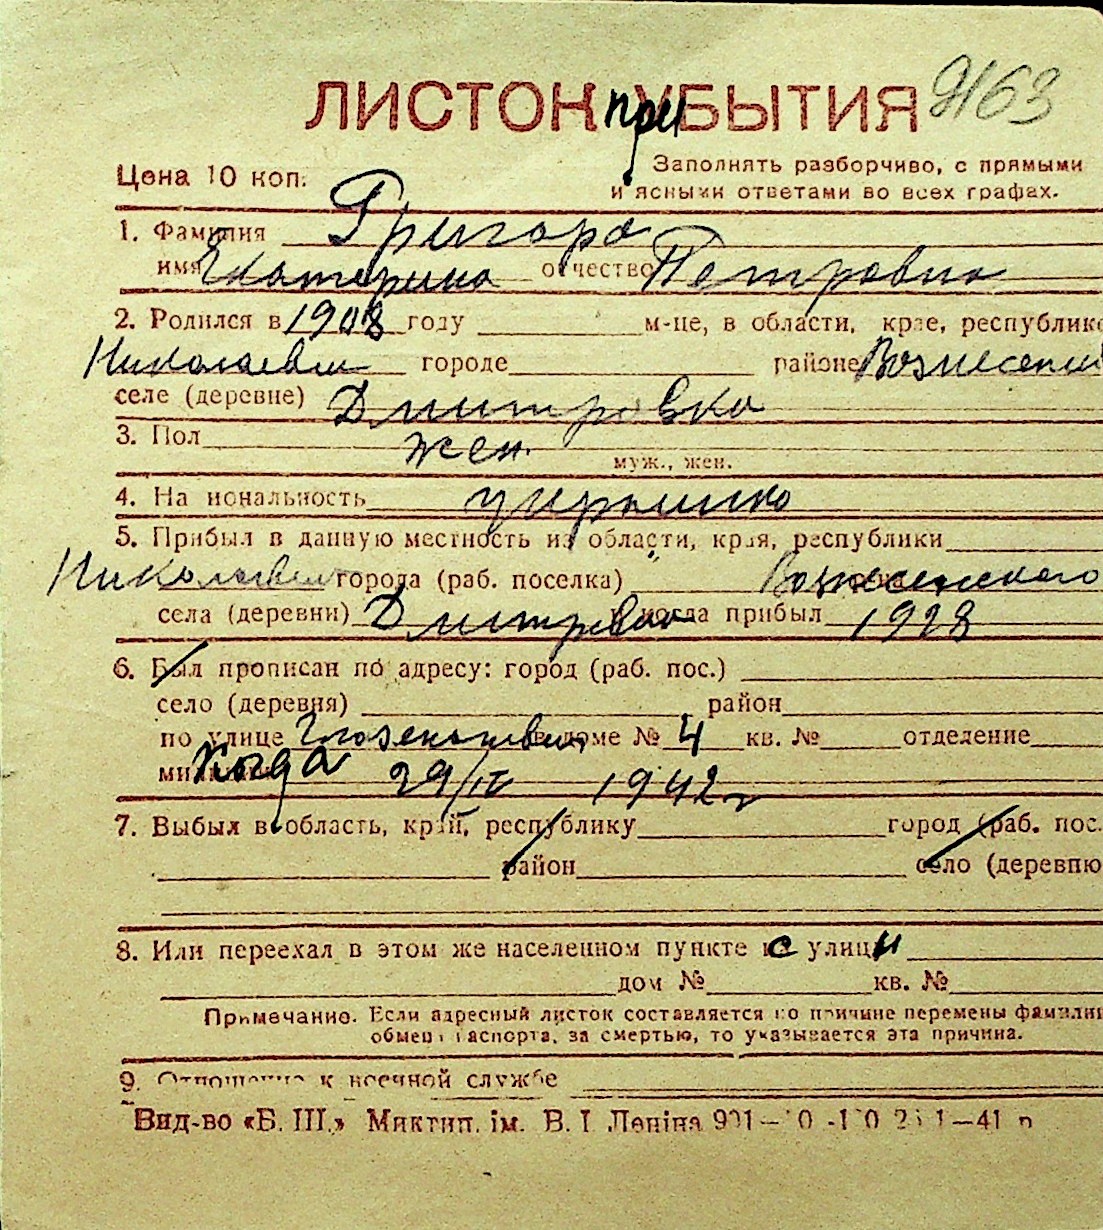 ЛИСТОК при УБЫТИЯ 9163
Цена 10 коп. Заполнять разборчиво, с прямыми
и ясными ответами во всех графах.
1. Фамилия Григора
имя Екатерина отчество Петровна
2. Родился в 1908 году м-це, в области, крае, республике
Николаевск городе районе Вознесенск
селе (деревне) Дмитровка
3. Пол жен.
муж., жен.
4. Национальность украинка
5. Прибыл в данную местность из области, края, республики
Николаевск города (раб. поселка) Вознесенского
села (деревни) Дмитровка и когда прибыл 1928
6. Был прописан по адресу: город (раб. пос.)
село (деревня) район
по улице в доме № 4 кв. № отделение
милиции Когда 29/IV 1942 г
7. Выбыл в область, край, республику город (раб. пос.
район село (деревню
8. Или переехал в этом же населенном пункте с улици
дом № кв. №
Примечание. Если адресный листок составляется по причине перемены фамилии
обмена паспорта, за смертью, то указывается эта причина.
9. Отношение к военной службе
Вид-во «Б. Ш.» Миктип. ім. В. І Леніна